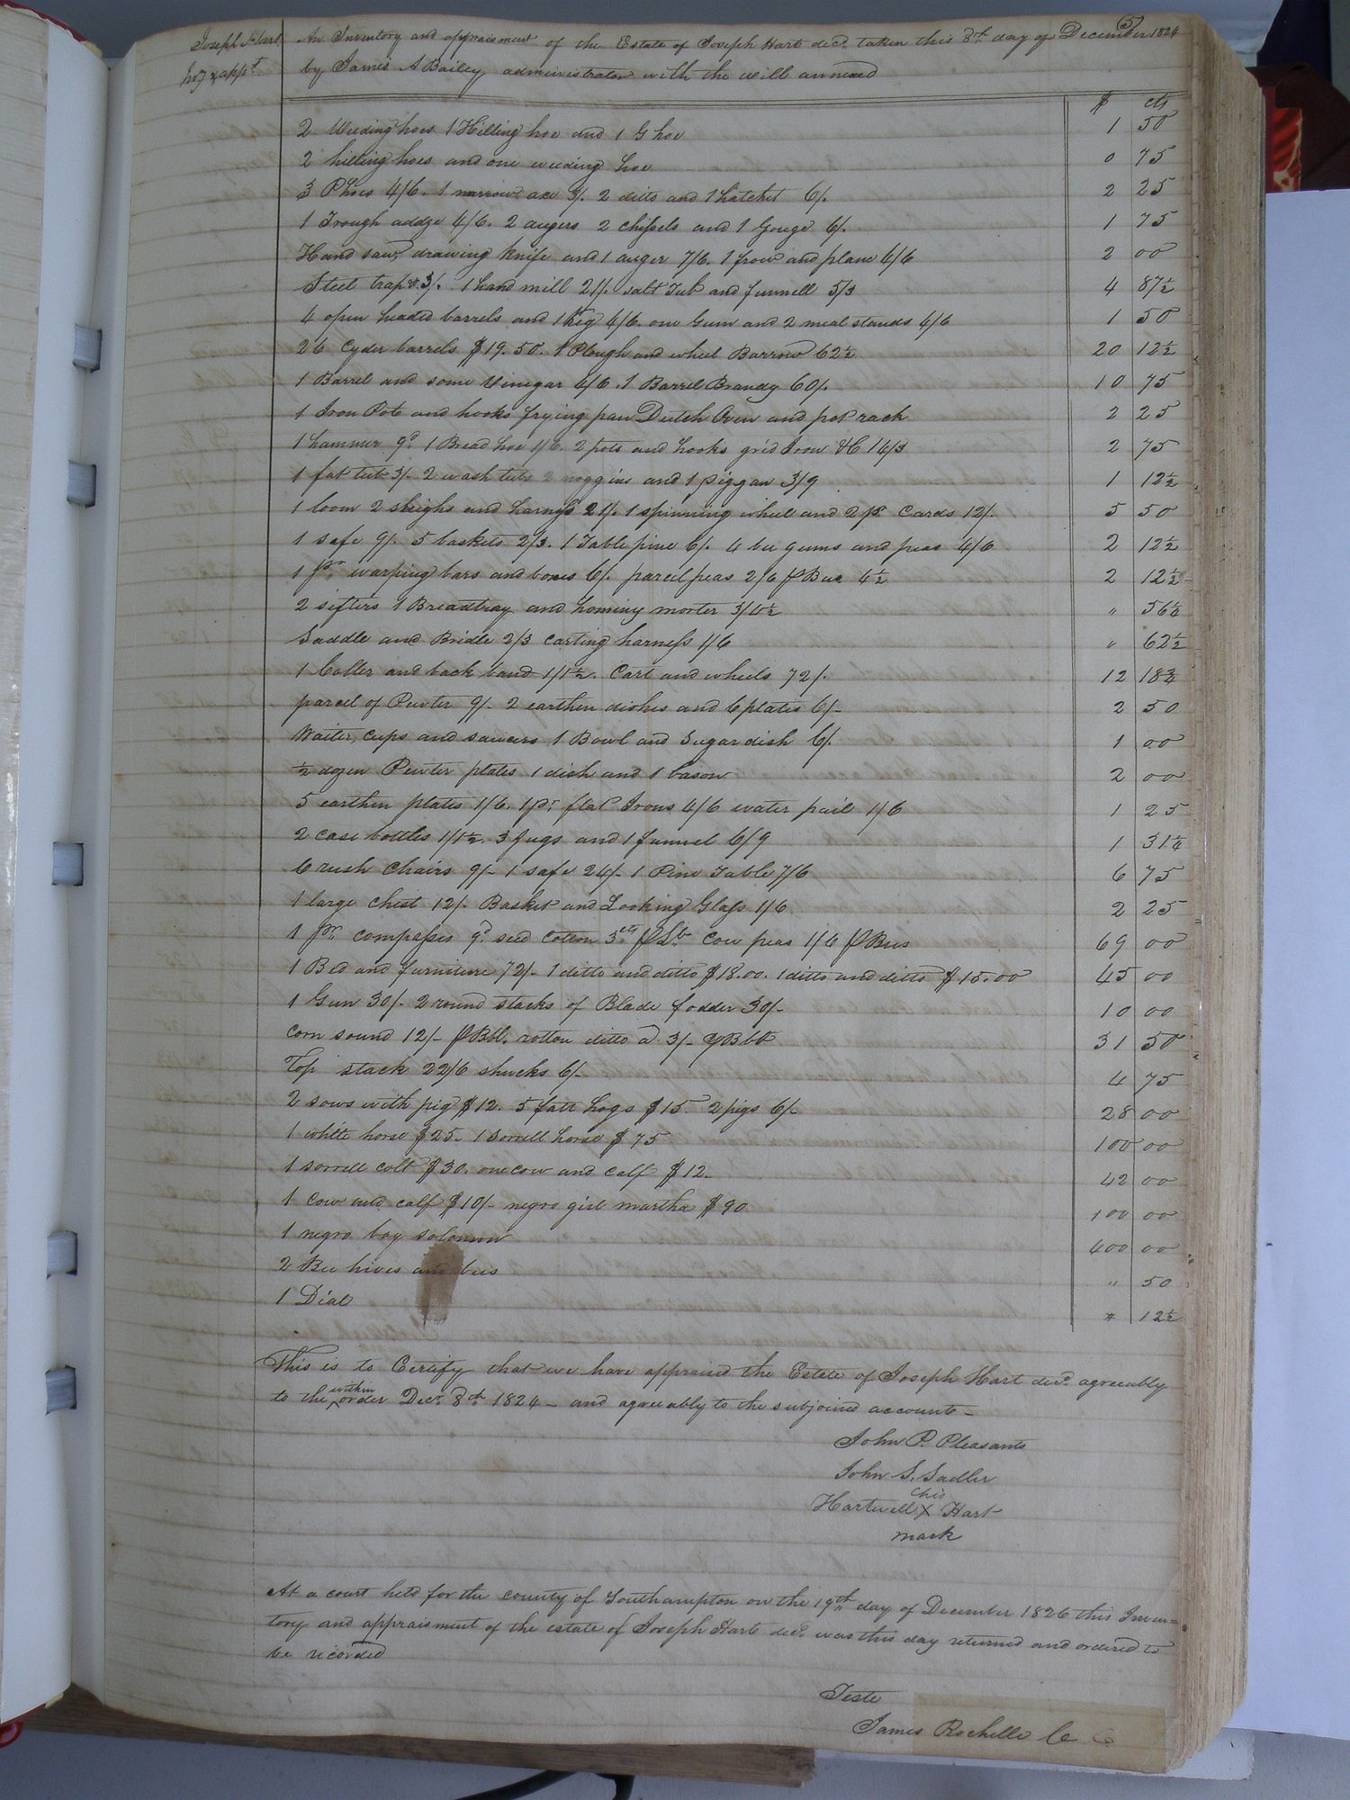 Joseph Hart
Invy & appt
5
An Inventory and appraisment of the Estate of Joseph Hart decd. taken this 8th day of December 1824
by James A Bailey, administrator with the will annexed
$ cts
2 Weeding hoes 1 Hilling hoe and 1 G hoe 1 50
2 hilling hoes and one weeding hoe 0 75
3 P hoes 4/6. 1 narrow axe 3/. 2 ditto and 1 hatchet 6/. 2 25
1 Trough addze 4/6. 2 augers 2 chissels and 1 Gouge 6/. 1 75
Hand saw, drawing knife and 1 auger 7/6. 1 frow and plane 4/6 2 00
Steel trap 3/. 1 hand mill 21/. salt Tub and funnell 5/3 4 87½
4 open headed barrels and 1 Keg 4/6. one Gum and 2 meal stands 4/6 1 50
26 Cyder barrels $19.50. 1 Plough and wheel Barrow 62½ 20 12½
1 Barrel and some Vinegar 4/6. 1 Barrel Brandy 60/. 10 75
1 Iron Pot and hooks frying pan Dutch Oven and pot rack 2 25
1 hammer 9d. 1 Bread hoe 1/6. 2 pots and hooks grid Iron &C 14/3 2 75
1 fat tub 3/. 2 wash tubs 2 noggins and 1 piggan 3/9 1 12½
1 loom 2 sleighs and harness 21/. 1 spinning wheel and 2 pr Cards 12/. 5 50
1 safe 9/. 5 baskets 2/3. 1 Table pine 6/. 4 bee gums and peas 4/6 2 12½
1 pr. warping bars and boxes 6/. parcel peas 2/6 p Bus 4½ 2 12½
2 sifters 1 Breadtray and hominy morter 3/4½ " 56¼
Saddle and Bridle 2/3 carting harness 1/6 " 62½
1 Coller and back band 1/1½. Cart and wheels 72/. 12 18¾
parcel of Pewter 9/- 2 earthen dishes and 6 plates 6/- 2 50
Waiter, cups and saucers 1 Bowl and Sugar dish 6/. 1 00
½ dozen Pewter plates 1 dish and 1 bason 2 00
5 earthen plates 1/6. 1 pr. flat Irons 4/6 water pail 1/6 1 25
2 case bottles 1/1½. 3 Jugs and 1 funnel 6/9 1 31¼
6 rush Chairs 9/- 1 safe 24/- 1 Pine Table 7/6 6 75
1 large Chest 12/. Basket and Looking Glass 1/6 2 25
1 pr. compasses 9d. seed cotton 3cts p Lb Cow peas 1/6 p Bus 69 00
1 Bed and furniture 72/- 1 ditto and ditto $18.00. 1 ditto and ditto $15.00 45 00
1 Gun 30/- 2 round stacks of Blade fodder 30/- 10 00
Corn sound 12/- p Bbl. rotton ditto a 3/- p Bbl 31 50
Top stack 22/6 shucks 6/- 4 75
2 sows with pig $12. 5 fatt hogs $15 2 pigs 6/- 28 00
1 white horse $25. 1 Sorrell horse $75 100 00
1 sorrell colt $30. one cow and calf $12- 42 00
1 Cow and calf $10/- negro girl martha $90 100 00
1 negro boy solomon 400 00
2 Bee hives and bees " 50
1 Dial " 12½
This is to Certify that we have appraised the Estate of Joseph Hart decd. agreeably
to the within order Decr. 8th 1824 - and agreeably to the subjoined accounts -
John P. Pleasants
John S. Sadler
his
Hartwell X Hart
mark
At a court held for the county of Southampton on the 19th day of December 1826 this Inven=
tory and appraisment of the estate of Joseph Hart decd. was this day returned and ordered to
be recorded
Teste
James Rochelle C C